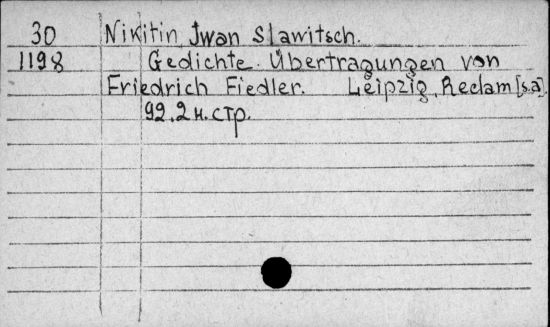 30 Nikitin Jwan Slawitsch.
1198 Gedichte. Übertragungen von
Friedrich Fiedler. Leipzig, Reclam [s.a].
92.2 н. стр.